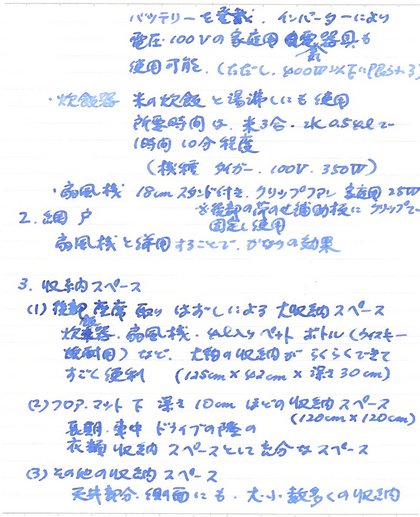 バッテリーを登載. インバーターにより
電圧・100Vの家庭用電気器具も
使用可能.（ただし、400W以下に限られる）
・炊飯器 米の炊飯と湯沸しにも使用
所要時間は、米3合・水0.5ℓで
1時間10分程度
（機種 タイガー. 100V. 350W）
・扇風機 18cmスタンド付き、クリップファン 家庭用 25W
※後部の荷のせ補助板にクリップで
固定し使用
2. 網戸
扇風機と併用することで、かなりの効果
3. 収納スペース
(1) 後部座席取りはずしによる大収納スペース
炊飯器、扇風機、4ℓ入りペットボトル（ウイスキー
焼酎用）など、大物の収納がらくらくできて
すごく便利 （125cm×42cm×深さ30cm）
(2) フロアマット下 深さ10cmほどの収納スペース
（120cm×120cm）
長期・車中ドライブの際の
衣類収納スペースとして充分なスペース
(3) その他の収納スペース
天井部分、側面にも、大・小・数多くの収納